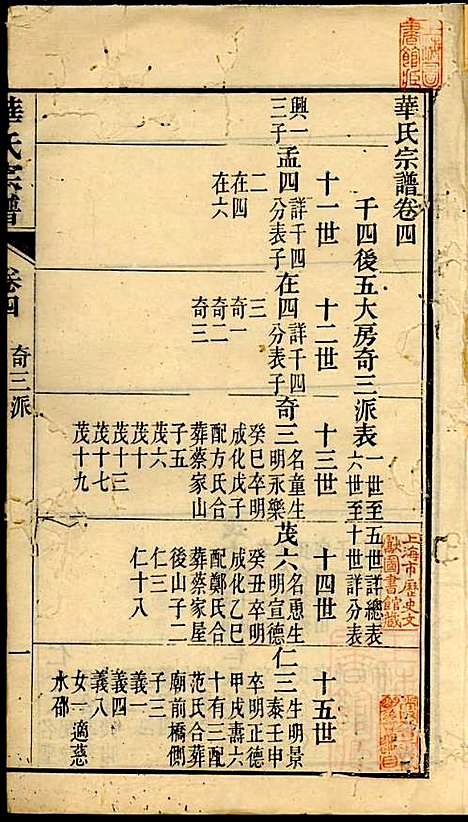 華氏宗譜卷四
千四後五大房奇三派表
一世至五世詳總表
六世至十世詳分表
十一世
十二世
十三世
十四世
十五世
興一
三子
孟四
詳千四
分表子
二
在四
在六
在四
詳千四
分表子
三
奇一
奇二
奇三
奇三
名童生
明永樂
癸巳卒明
成化戊子
配方氏合
葬蔡家山
子五
茂六
茂十
茂十三
茂十七
茂十九
茂六
名惠生
明宣德
癸丑卒明
成化乙巳
配鄭氏合
葬蔡家屋
後山子二
仁三
仁十八
仁三
生明景
泰壬申
卒明正德
甲戌壽六
十有三配
范氏合葬
廟前橋側
子三
義一
義四
義八
女一適慈
水邵
華氏宗譜
卷四
奇三派
一
上海市歷史文
獻圖書館藏